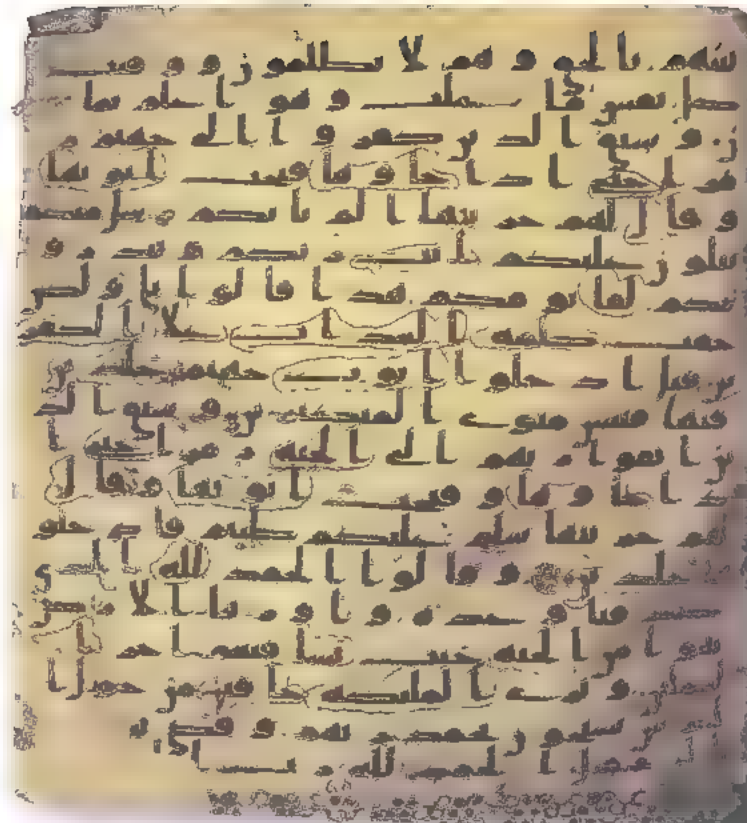 بينهم بالحق وهم لا يظلمون ووفيت
كل نفس ما عملت وهو اعلم بما يفعلو
ن وسيق الذين كفروا الى جهنم ز
مرا حتى اذا جاوها فتحت ابوبها
وقال لهم خزنتها الم ياتكم رسل منكم
يتلون عليكم ايت ربكم وينذرو
نكم لقا يومكم هذا قالوا بلى ولكن
حقت كلمه العذاب على الكفر
ين قيل ادخلوا ابوب جهنم خلدين
فيها فبئس مثوى المتكبرين وسيق الذ
ين اتقوا ربهم الى الجنه زمرا حتى ا
ذا جاوها وفتحت ابوبها وقال
لهم خزنتها سلم عليكم طبتم فادخلو
ها خلدين وقالوا الحمد لله الذي
صدقنا وعده واورثنا الارض
نتبوا من الجنه حيث نشا فنعم اجر
العملين وترى الملئكه حافين من حول ا
لعرش يسبحون بحمد ربهم وقضى
الحمد لله رب